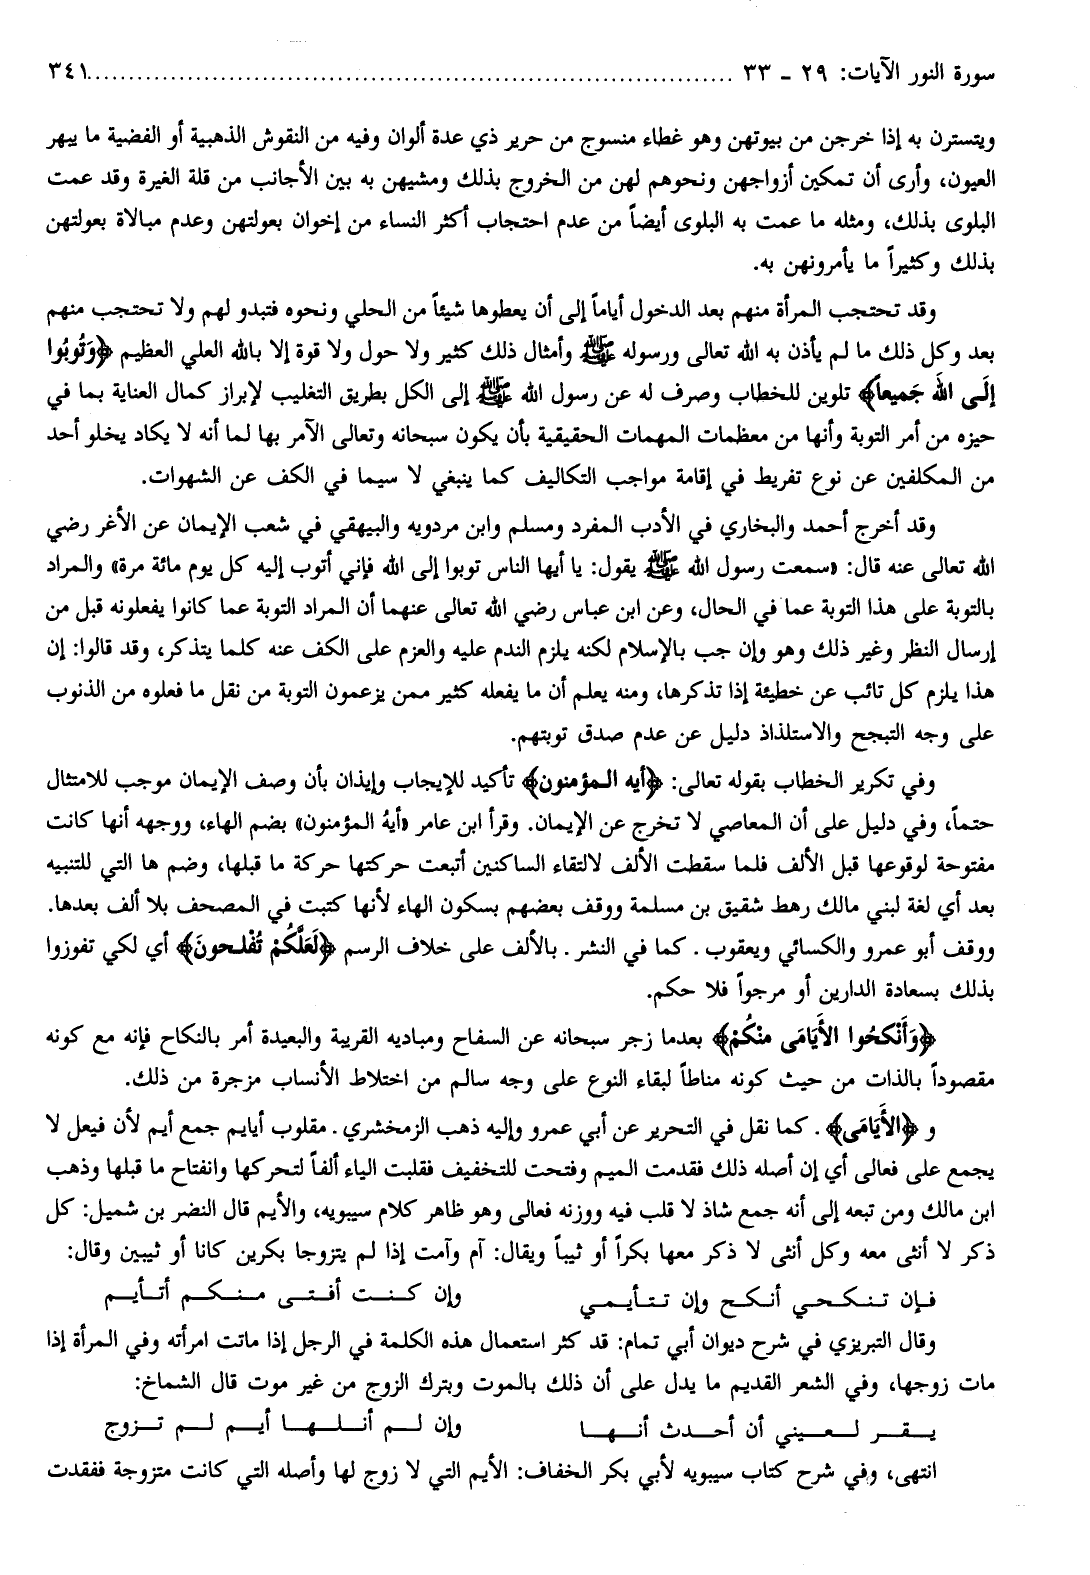 سورة النور الآيات: ٢٩ - ٣٣ ........................................................................ ٣٤١
ويتسترن به إذا خرجن من بيوتهن وهو غطاء منسوج من حرير ذي عدة ألوان وفيه من النقوش الذهبية أو الفضية ما يبهر
العيون، وأرى أن تمكين أزواجهن ونحوهم لهن من الخروج بذلك ومشيهن به بين الأجانب من قلة الغيرة وقد عمت
البلوى بذلك، ومثله ما عمت به البلوى أيضاً من عدم احتجاب أكثر النساء من إخوان بعولتهن وعدم مبالاة بعولتهن
بذلك وكثيراً ما يأمرونهن به.
وقد تحتجب المرأة منهم بعد الدخول أياماً إلى أن يعطوها شيئاً من الحلي ونحوه فتبدو لهم ولا تحتجب منهم
بعد وكل ذلك ما لم يأذن به الله تعالى ورسوله ﷺ وأمثال ذلك كثير ولا حول ولا قوة إلا بالله العلي العظيم ﴿وَتُوبُوا
إلَى اللهَ جَميعاً﴾ تلوين للخطاب وصرف له عن رسول الله ﷺ إلى الكل بطريق التغليب لإبراز كمال العناية بما في
حيزه من أمر التوبة وأنها من معظمات المهمات الحقيقية بأن يكون سبحانه وتعالى الآمر بها لما أنه لا يكاد يخلو أحد
من المكلفين عن نوع تفريط في إقامة مواجب التكاليف كما ينبغي لا سيما في الكف عن الشهوات.
وقد أخرج أحمد والبخاري في الأدب المفرد ومسلم وابن مردويه والبيهقي في شعب الإيمان عن الأغر رضي
الله تعالى عنه قال: «سمعت رسول الله ﷺ يقول: يا أيها الناس توبوا إلى الله فإني أتوب إليه كل يوم مائة مرة» والمراد
بالتوبة على هذا التوبة عما في الحال، وعن ابن عباس رضي الله تعالى عنهما أن المراد التوبة عما كانوا يفعلونه قبل من
إرسال النظر وغير ذلك وهو وإن جب بالإسلام لكنه يلزم الندم عليه والعزم على الكف عنه كلما يتذكر، وقد قالوا: إن
هذا يلزم كل تائب عن خطيئة إذا تذكرها، ومنه يعلم أن ما يفعله كثير ممن يزعمون التوبة من نقل ما فعلوه من الذنوب
على وجه التبجح والاستلذاذ دليل عن عدم صدق توبتهم.
وفي تكرير الخطاب بقوله تعالى: ﴿أيه المؤمنون﴾ تأكيد للإيجاب وإيذان بأن وصف الإيمان موجب للامتثال
حتماً، وفي دليل على أن المعاصي لا تخرج عن الإيمان. وقرأ ابن عامر «أيهُ المؤمنون» بضم الهاء، ووجهه أنها كانت
مفتوحة لوقوعها قبل الألف فلما سقطت الألف لالتقاء الساكنين أتبعت حركتها حركة ما قبلها، وضم ها التي للتنبيه
بعد أي لغة لبني مالك رهط شقيق بن مسلمة ووقف بعضهم بسكون الهاء لأنها كتبت في المصحف بلا ألف بعدها.
ووقف أبو عمرو والكسائي ويعقوب . كما في النشر . بالألف على خلاف الرسم ﴿لَعَلَّكُمْ تُفْلحونَ﴾ أي لكي تفوزوا
بذلك بسعادة الدارين أو مرجواً فلا حكم.
﴿وَأَنْكحُوا الأَيَامَى منْكُمْ﴾ بعدما زجر سبحانه عن السفاح ومباديه القريبة والبعيدة أمر بالنكاح فإنه مع كونه
مقصوداً بالذات من حيث كونه مناطاً لبقاء النوع على وجه سالم من اختلاط الأنساب مزجرة من ذلك.
و ﴿الأَيَامَى﴾ . كما نقل في التحرير عن أبي عمرو وإليه ذهب الزمخشري . مقلوب أيايم جمع أيم لأن فيعل لا
يجمع على فعالى أي إن أصله ذلك فقدمت الميم وفتحت للتخفيف فقلبت الياء ألفاً لتحركها وانفتاح ما قبلها وذهب
ابن مالك ومن تبعه إلى أنه جمع شاذ لا قلب فيه ووزنه فعالى وهو ظاهر كلام سيبويه، والأيم قال النضر بن شميل: كل
ذكر لا أنثى معه وكل أنثى لا ذكر معها بكراً أو ثيباً ويقال: آم وآمت إذا لم يتزوجا بكرين كانا أو ثيبين وقال:
فإن تنكحي أنكح وإن تتأيمي وإن كنت أفتى منكم أتأيم
وقال التبريزي في شرح ديوان أبي تمام: قد كثر استعمال هذه الكلمة في الرجل إذا ماتت امرأته وفي المرأة إذا
مات زوجها، وفي الشعر القديم ما يدل على أن ذلك بالموت وبترك الزوج من غير موت قال الشماخ:
يقر لعيني أن أحدث أنها وإن لم أنلها أيم لم تزوج
انتهى، وفي شرح كتاب سيبويه لأبي بكر الخفاف: الأيم التي لا زوج لها وأصله التي كانت متزوجة ففقدت